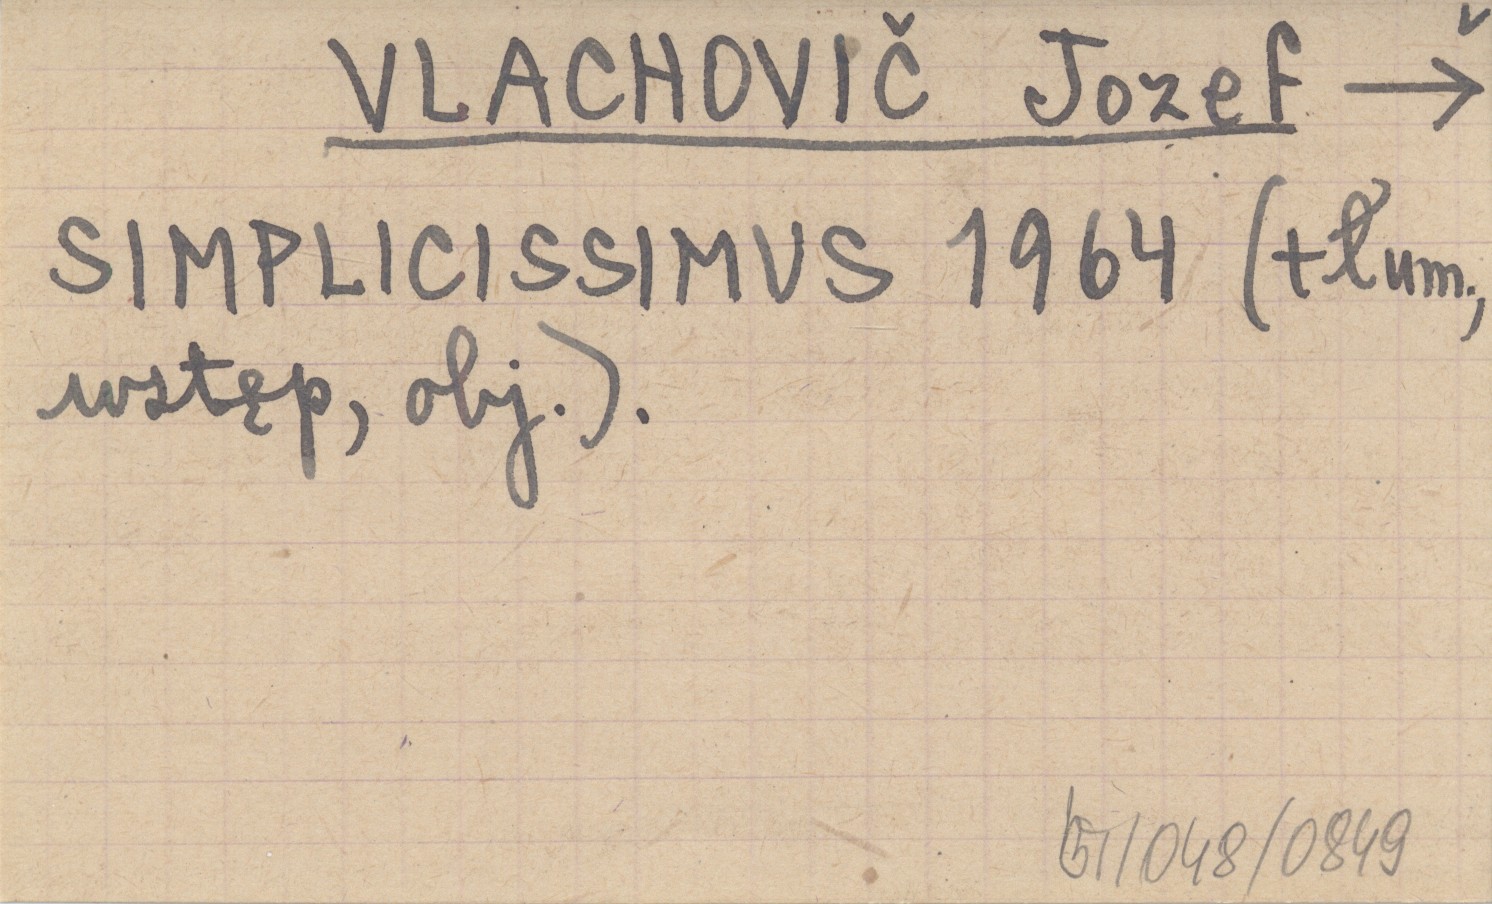 VLACHOVIČ Jozef → v
SIMPLICISSIMUS 1964 (tłum.,
wstęp, obj.).
/048/0849